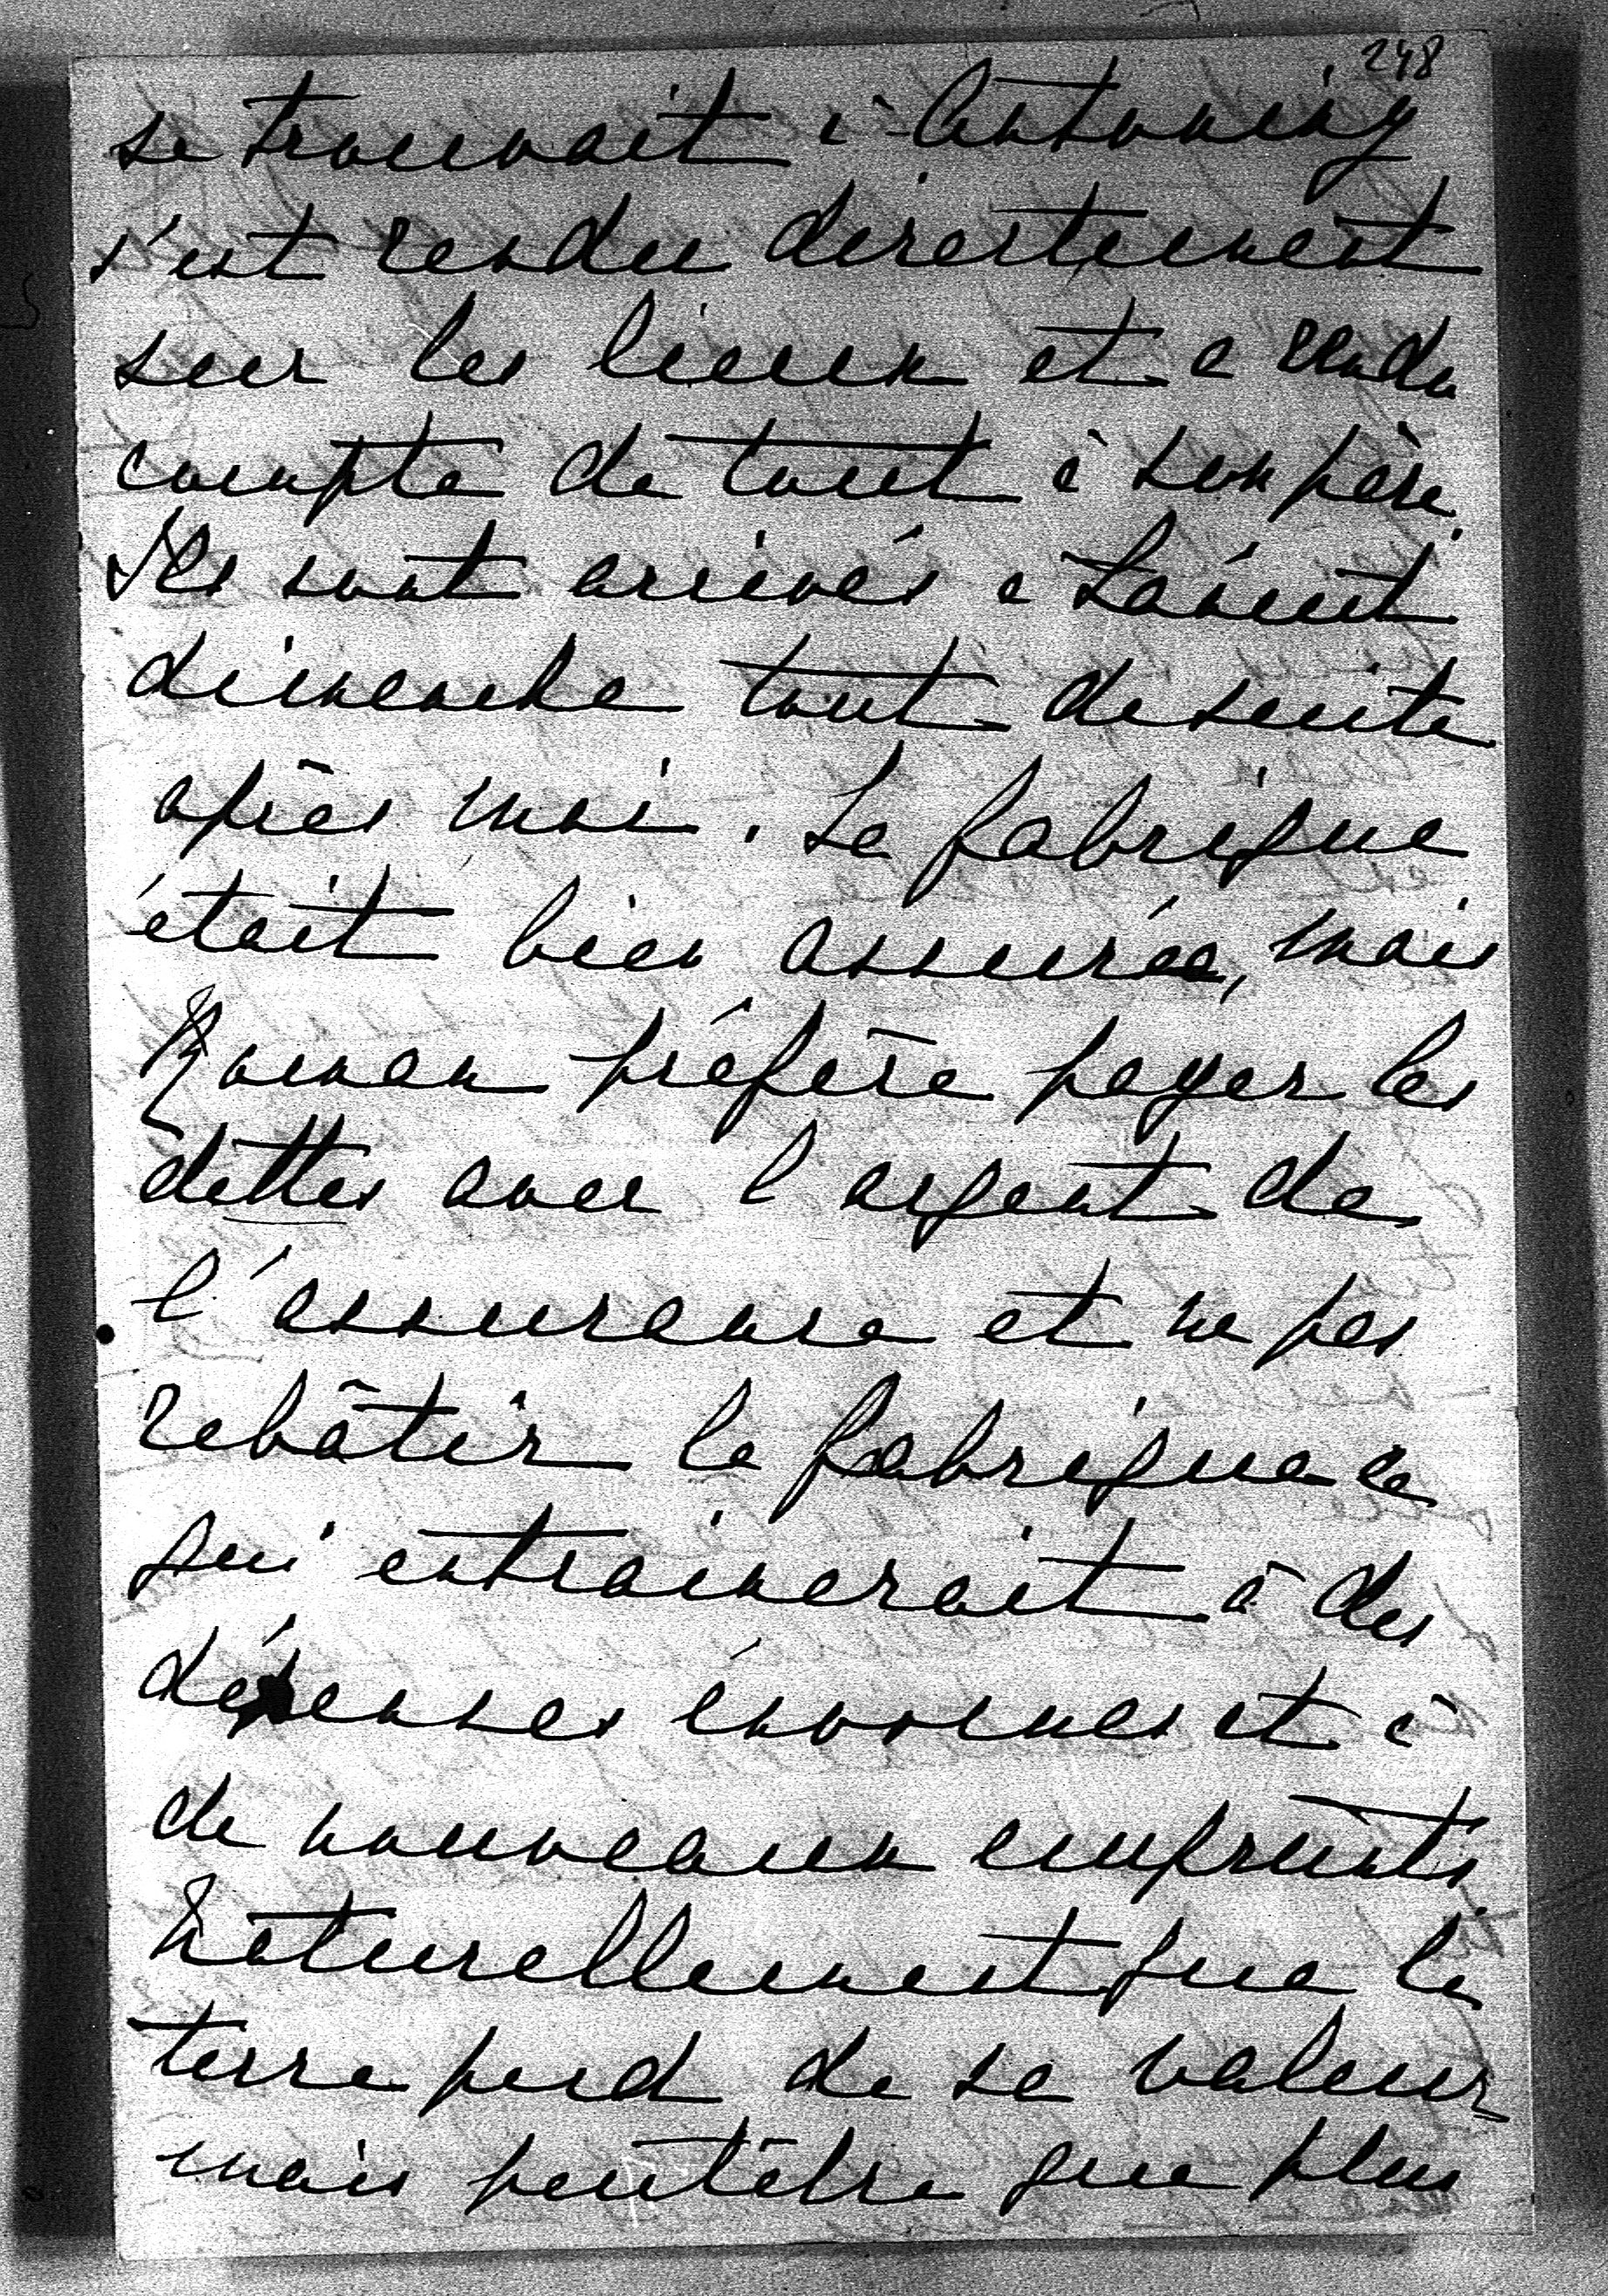 248
se trouvait à Antoniny
s'est rendu directement
sur les lieux et a rendu
compte de tout à son père.
Ils sont arrivés à Łańcut
dimanche tout de suite
après moi. La fabrique
était bien assurée, mais
Roman préfère payer les
dettes avec l'argent de
l'assurance et ne pas
rebâtir la fabrique ce
qui entrainerait à des
dépenses énormes et à
de nouveaux emprunts
Naturellement que la
terre perd de sa valeur
mais peutêtre que plus